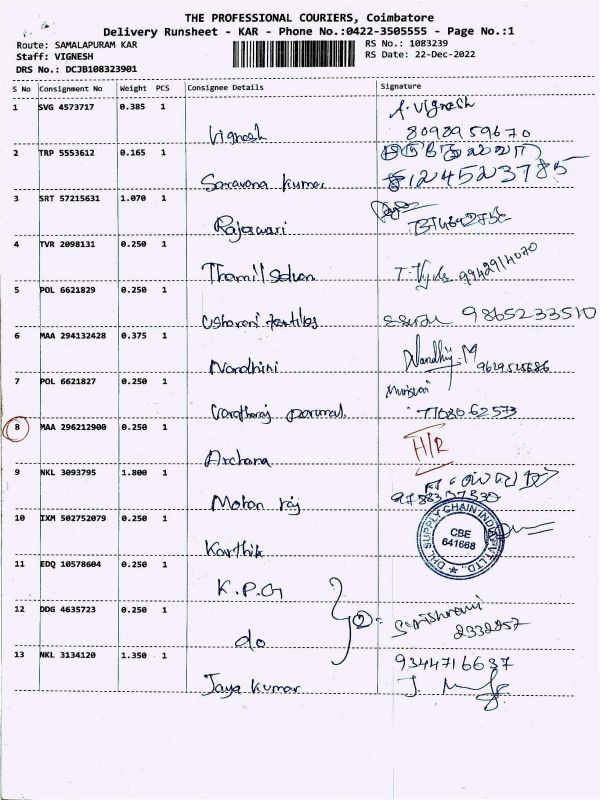 THE PROFESSIONAL COURIERS, Coimbatore
Delivery Runsheet - KAR - Phone No.:0422-3505555 - Page No.:1
Route: SAMALAPURAM KAR RS No.: 1083239
Staff: VIGNESH RS Date: 22-Dec-2022
DRS No.: DCJB108323901
S No Consignment No Weight PCS Consignee Details Signature
1 SVG 4573717 0.385 1 Vignesh
2 TRP 5553612 0.165 1 Saravana kumar
3 SRT 57215631 1.070 1 Rajeswari
4 TVR 2098131 0.250 1 Thamil Selvan
5 POL 6621829 0.250 1 Usharani textiles 9865233510
6 MAA 294132428 0.375 1 Nandhini Nandhij.M
7 POL 6621827 0.250 1
8 MAA 296212900 0.250 1 Archana H/R
9 NKL 3093795 1.800 1 Mohan raj
10 IXM 502752079 0.250 1 Karthik
DHL SUPPLY CHAIN INDIA PVT LTD., CBE 641668
11 EDQ 10578604 0.250 1 K.P.G
12 DDG 4635723 0.250 1 do 2 2332257
13 NKL 3134120 1.350 1 Jaya kumar 9344716637